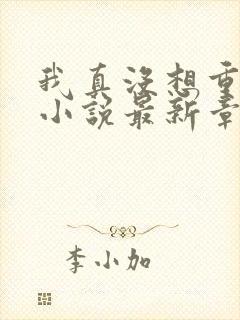 我真没想重
小说最新章
李小加